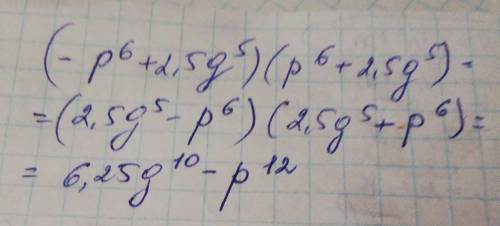 (- p⁶ + 2,5g⁵)(p⁶ + 2,5g⁵) -
= (2,5g⁵ - p⁶)(2,5g⁵ + p⁶) =
= 6,25g¹⁰ - p¹²